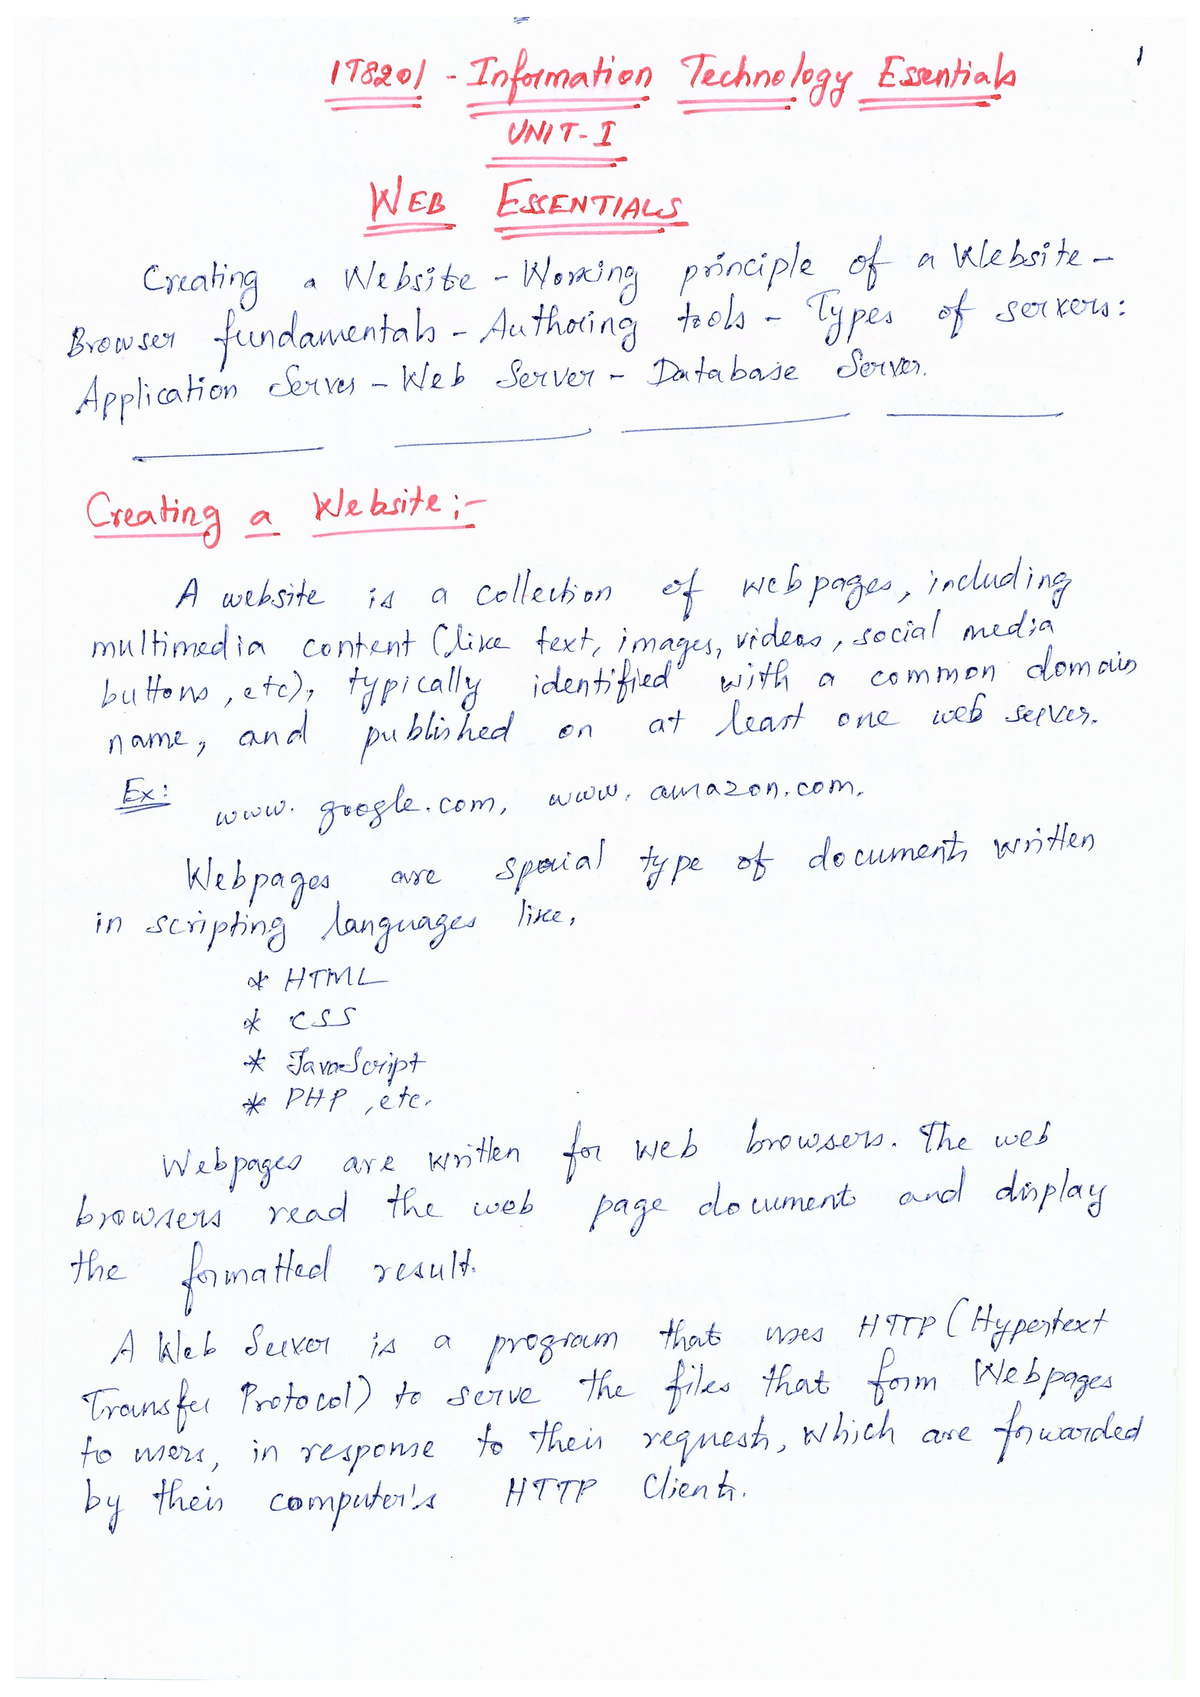 1
IT8201 - Information Technology Essentials
UNIT-I
WEB ESSENTIALS
Creating a Website - Working principle of a Website -
Browser fundamentals - Authoring tools - Types of servers:
Application Server - Web Server - Database Server.
Creating a Website:-
A website is a collection of webpages, including
multimedia content (like text, images, videos, social media
buttons, etc), typically identified with a common domain
name, and published on at least one web server.
Ex: www.google.com, www.amazon.com.
Webpages are special type of documents written
in scripting languages like,
* HTML
* CSS
* JavaScript
* PHP, etc.
Webpages are written for web browsers. The web
browsers read the web page document and display
the formatted result.
A Web Server is a program that uses HTTP (Hypertext
Transfer Protocol) to serve the files that form Webpages
to users, in response to their requests, which are forwarded
by their computer's HTTP Clients.